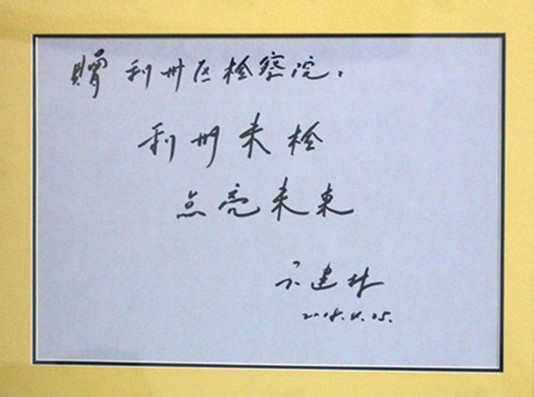 赠利州区检察院：
利州未检
点亮未来
卞建林
2018.4.25.